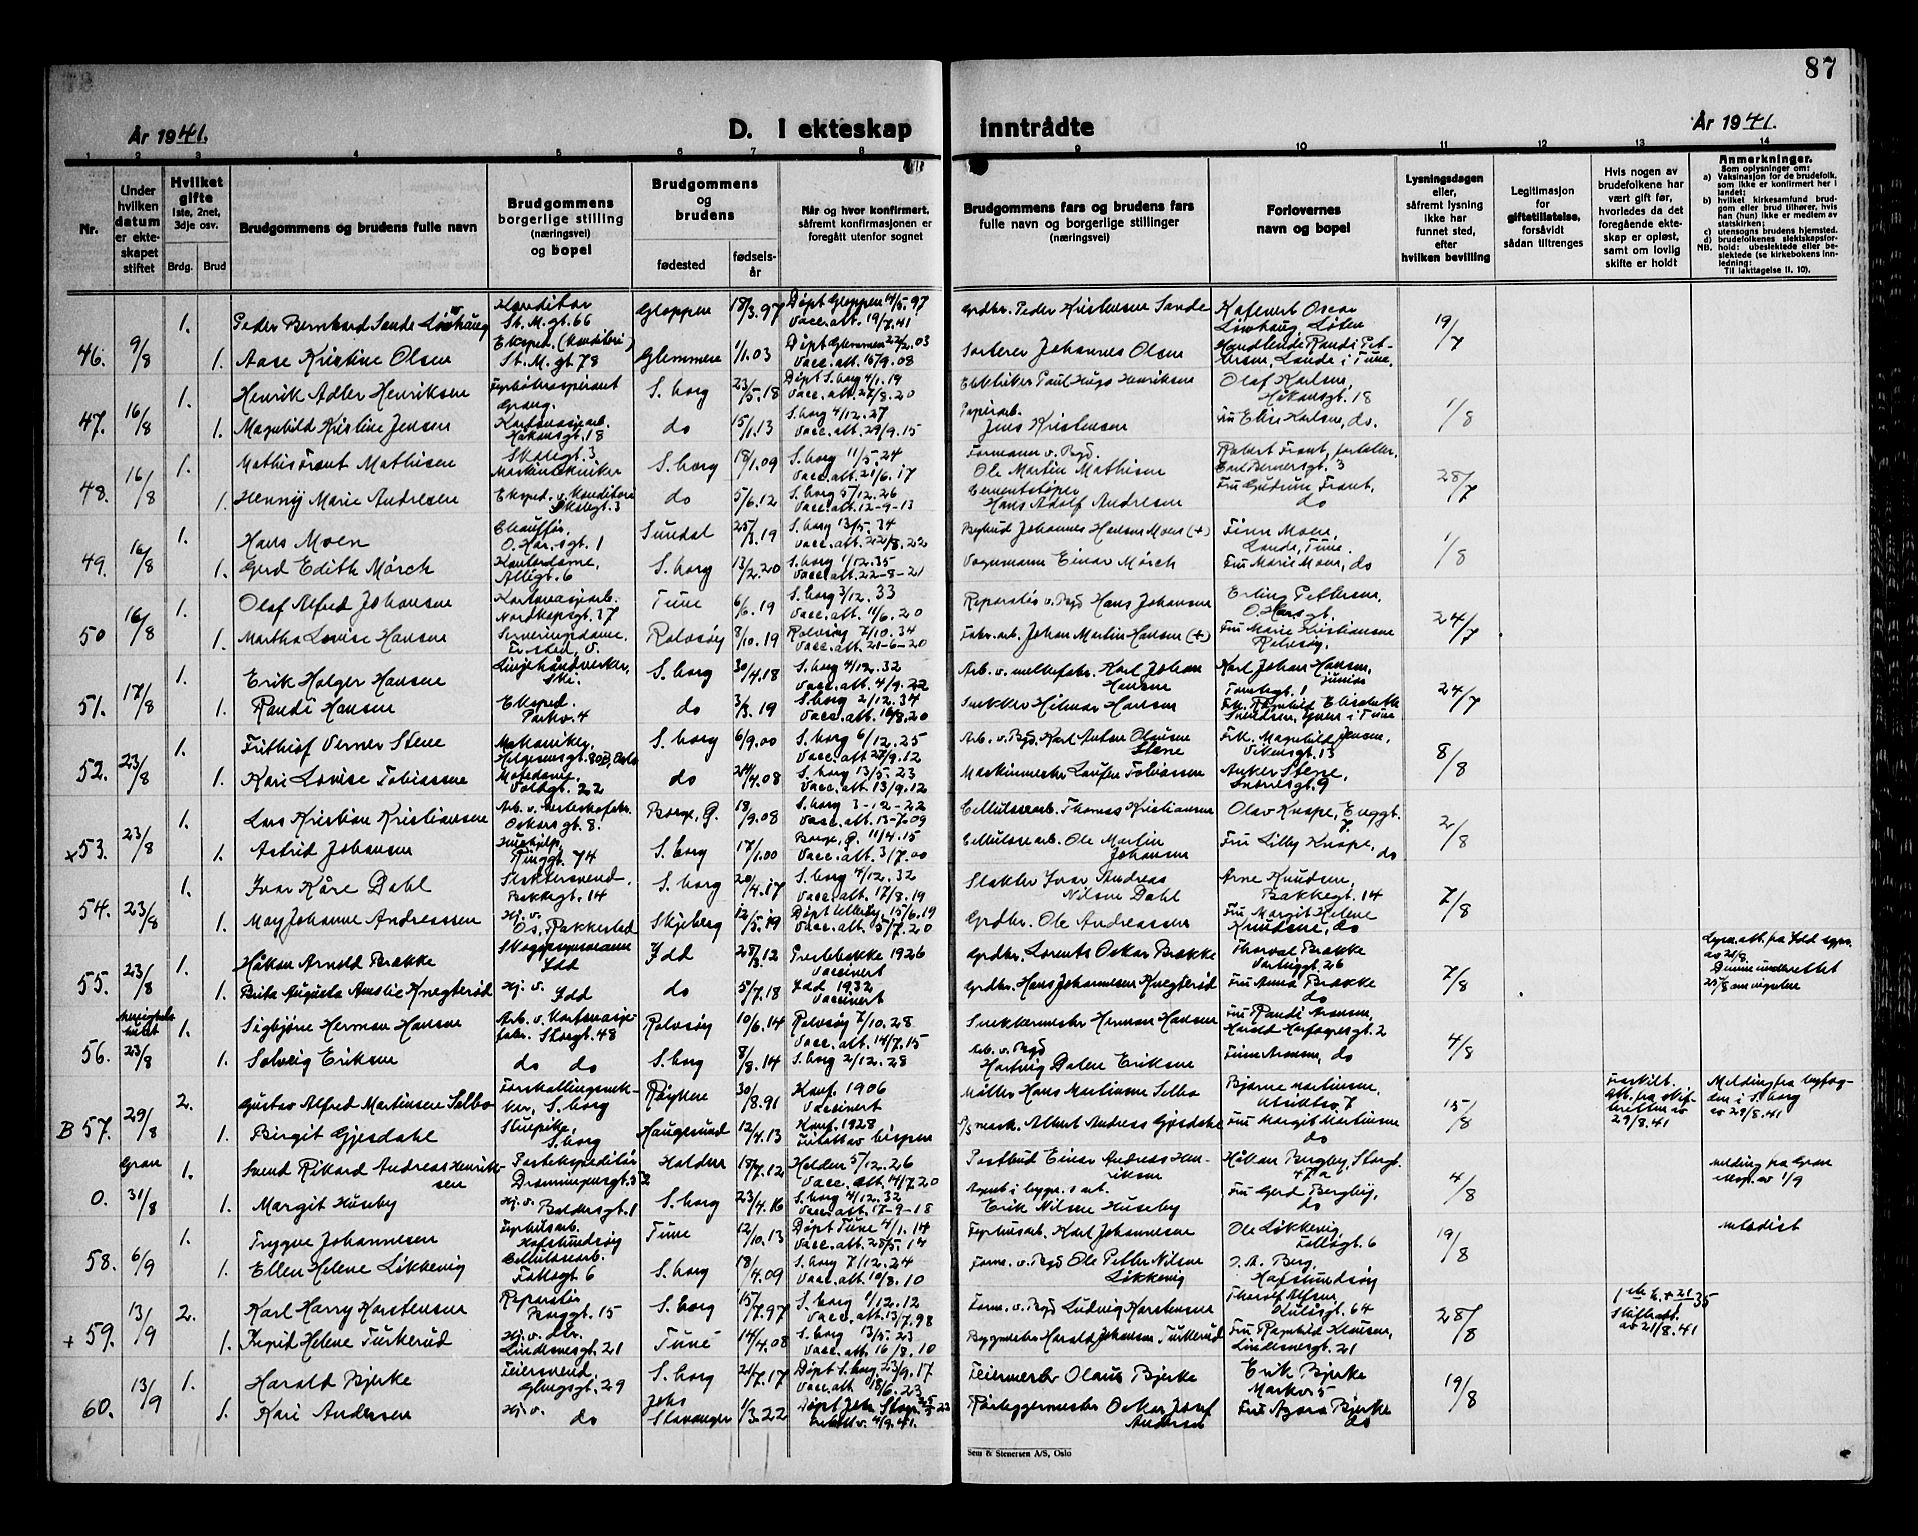 87
År 1941.
D. I ekteskap inntrådte
År 1941.
1 2 3 4 5 6 7 8 9 10 11 12 13 14
Nr.
Under hvilken datum er ekteskapet stiftet
Hvilket gifte
1ste, 2net, 3dje osv.
Brdg. Brud
Brudgommens og brudens fulle navn
Brudgommens borgerlige stilling (næringsvei) og bopel
Brudgommens og brudens
fødested fødselsår
Når og hvor konfirmert, såfremt konfirmasjonen er foregått utenfor sognet
Brudgommens fars og brudens fars fulle navn og borgerlige stillinger (næringsvei)
Forlovernes navn og bopel
Lysningsdagen eller, såfremt lysning ikke har funnet sted, efter hvilken bevilling
Legitimasjon for giftetillatelse, forsåvidt sådan tiltrenges
Hvis nogen av brudefolkene har vært gift før, hvorledes da det foregående ekteskap er opløst, samt om lovlig skifte er holdt
Anmerkninger.
Som oplysninger om:
a) Vaksinasjon for de brudefolk, som ikke er konfirmert her i landet;
b) hvilket kirkesamfund brudgom eller brud tilhører, hvis han (hun) ikke er medlem av statskirken;
c) utensogns brudens hjemsted.
d) brudefolkenes slektskapsforhold: ubeslektede eller beslektede (se kirkebokens innledning:
NB.
Til iakttagelse II. 10).
46. 9/8 1. Peder Bernhard Sande Løvhaug Konditor St. M. gt. 66 Gloppen 18/3.97 Døpt Gloppen 14/5.97 Vacc.att. 19/7.41 Grdbr. Peder Kristensen Sande Oscar Løvhaug, Løten 19/7
1. Aase Kristine Olsen Eksped. (konditori) St. M. gt. 78 Glemmen 1/1.03 Døpt Glemmen 22/2.03 Vacc. att. 15/9.08 Sorterer Johannes Olsen Handlende Randi Petersen, Lande i Tune.
47. 16/8 1. Henrik Adler Henriksen Grong. S. borg 23/5.18 Døpt S. borg 4/1.19 Vacc. att. 27/8.20 Paul Hugo Henriksen Olaf Karlsen, Håkonsgt. 18 1/8
1. Magnhild Kristine Jensen Kartonasjearb. Håkonsgt. 18 do 15/1.13 S. borg 4/12.27 Vacc. att. 29/9.15 Papirarb. Jens Kristensen Fru Elise Karlsen, do.
48. 16/8 1. Mathis Frant Mathisen Skolegt. 3, Maskintekniker S. borg 18/1.09 S. borg 11/5.24 Vacc. att. 21/6.17 Formann v. Bgd. Ole Martin Mathisen Robert Frant, forteller, Carl Bernersgt. 3 28/7
1. Henny Marie Andresen Eksped. v. konditori Skolegt. 3 do 5/6.12 S. borg 5/12.26 Vacc. att. 12-9-13 Cementstøper Hans Adolf Andresen Fru Gudrun Frant, do
49. 16/8 1. Hans Moen Chauffør, O. Har. sgt. 1 Sundal 25/3.19 S. borg 13/5.34 Vacc. att. 22/8.22 Johannes Hansen Moen (+) Finn Moen, Lande, Tune. 1/8
1. Gerd Edith Mørch Kontordame, Allégt. 6 S. borg 13/2.20 S. borg 1/12.35 Vacc. att. 22-8-21 Vognmann Einar Mørch Fru Marie Moen, do
50 16/8 1. Olaf Alfred Johansen Kartonasjearb. Nordkapsgt. 37 Tune 6/6.19 S. borg 3/12.33 Vacc. att. 11/6.20 Reparatør v. Bgd Hans Johansen Erling Pettersen, O. Harsgt. 24/7
1. Martha Lovise Hansen Serveringsdame, Rolvsøy 8/10.19 Rolvsøy 7/10.34 Vacc. att. 21-6-20 Fabr. arb. Johan Martin Hansen (+) Fru Marie Kristiansen Rolvsøy,
51. 17/8 1. Erik Holger Hansen Linjehåndverker, Ski. S. borg 30/4.18 S. borg 4/12.32 Vacc. att. 4/9.22 Arb. v. melkefabr. Karl Johan Hansen Karl Johan Hansen, junior Tomtegt. 1 24/7
1. Randi Hansen Eksped. Parkv. 4 do 3/3.19 S. borg 2/12.34 Vacc. att. 16/8.20 Snekker Hilmar Hansen Frk. Ragnhild Elisabeth Svendsen, i Tune
52. 23/8 1. Frithiof Verner Stene Mekaniker, Helgesensgt. 80B, Oslo S. borg 6/9.00 S. borg 6/12.25 Vacc. att. 27/9.12 Arb. v. Bgd. Karl Anton Olausen Stene Frk. Magnhild Jensen, Vikensgt. 13 8/8
1. Kari Lovise Tobiassen Motedame, Voldgt. 22 do 24/4.08 S. borg 13/5.23 Vacc. att. 13/9.12 Maskinmester Laufen Tobiassen Anker Stene, Snorresgt. 9
x 53. 23/8 1. Lars Kristian Kristiansen Oskars gt. 8. Borge, Ø. 18/9.08 S. borg 3-12-22 Vacc. att. 13-7-09 Cellulosearb. Thomas Kristiansen Olav Knape, Enggt. 7. 2/8
1. Astrid Johansen Hushjelp, Ringgt. 74 S. borg 17/1.00 Borge, Ø. 11/4.15 Vacc. att. 3/7.00 Cellulosearb. Ole Martin Johansen Fru Lilly Knape, do
54. 23/8 1. Ivar Kåre Dahl Slaktersvend, Bakkegt. 14 S. borg 20/4.17 S. borg 4/12.32 Vacc. att. 17/8.19 Slakter Ivar Andreas Nilsen Dahl Arne Knudsen, Bakkegt. 14 7/8
1. May Johanne Andreassen Hj. v. Os, Rakkestad Skjeberg 12/5.19 Døpt Ullerøy, 15/6.19 Vacc. att. 5/7.20 Grdbr. Ole Andreassen Fru Margit Helene Knudsen, do
55. 23/8 1. Håkon Arnold Brække Skogassistent Idd Idd 28/3.12 1926 Vaccinert Grdbr. Lorents Oskar Brække Thorval Brække Varteiggt 26 7/8 Lysn. att. fra Idd sgpr. av 21/8. Denne underrettet 25/8 om vigselen
1. Brita Augusta Amalie Knegterød Hj. v. Idd do 5/7.18 Idd 1932 Vaccinert Grdbr. Hans Johannesen Knegterød Fru Anna Brække do
56. Menighetshuset 23/8 1. Sigbjørn Herman Hansen Arb. v. kartonasjefabr. Storgt. 48 Rolvsøy 10/6.14 Rolvsøy 7/10.28 Vacc. att. 14/7.15 Snekkermester Herman Hansen Fru Randi Aronsen, Harald Harfagresgt. 2 4/8
1. Solveig Eriksen do do S. borg 8/8.14 S. borg 2/12.28 Arb. v. Bgd Hartvig Dalen Eriksen Finn Aronsen, do
B 57. 29/8 2. Gustav Alfred Martinsen Selbo Forskallingssnekker, S. borg Røyken 30/8.91 Konf. 1906 Vaccinert Møller Hans Martinsen Selbo Bjarne Martinsen, Utsiktsv. 7 15/8 Fraskilt. Att. fra skifteretten av 29/8.41 Melding fra byfogden i S. borg av 29/8.41
1. Birgit Gjesdahl Strupike, S. borg Haugesund 12/4.13 Konf. 1928 Fritatt av bispen mask. Albert Andreas Gjesdahl Fru Margit Martinsen do
0. Gran 31/8 1. Svend Rikard Andreas Henriksen Postekspeditør Dronningensgt. 32 Halden 18/7.12 Halden 5/12.26 Vacc. att. 14/7.20 Postbud Einar Andreas Henriksen Håkon Bergby, Storgt. 47a 4/8 Melding fra Gran av 1/9
1. Margit Huseby Hj. v. Baldersgt. 1 S. borg 23/4.16 S. borg 4/12.32 Vacc. att. 17-9-18 Erik Nilsen Huseby Fru Gerd Bergby, do
58. 6/9 1. Trygve Johannesen Hafslundsøy Tune 12/10.13 Døpt Tune 4/1.14 Vacc. att. 28/5.14 Karl Johannesen Ole Løkkevig Follogt. 6 19/8 Metodist
1. Ellen Helene Løkkevig Cellulosearb. Follogt. 6 S. borg 18/4.09 S. borg 7/12.24 Vacc. att. 10/8.10 Form. v. Bgd Ole Petter Nilsen Løkkevig J. A. Berg, Hafslundsøy
+ 59. 13/9 2. Karl Harry Karstensen Reparatør Borggt. 15 S. borg 15/7.97 S. borg 1/12.12 Vacc. att. 13/7.98 Form. v. Bgd Ludvig Karstensen Thorolf Alfsen, Kulåsgt. 64 28/8 1ste h. + 21/1 35 Skifteatt. av 21/8.41
1. Ingrid Helene Turkerud Hj. v. do. Lindemansgt. 21 Tune 14/4.08 S. borg 13/5.23 Vacc. att. 16/8.10 Byggmester Harald Johansen Turkerud Fru Ragnhild Klausen, Lindemansgt. 21
60. 13/9 1. Harald Bjerke Feiersvend, Glengsgt. 29 S. borg 21/7.17 Døpt S. borg 23/9.17 Vacc. att 18/6.23 Feiermester Olaus Bjerke Erik Bjerke Markv 5 19/8
1. Kari Andersen Hj. v. do Johs Stavanger 1/3.22 Døpt Joh. Stavr. Rørleggermester Oskar Josef Andersen Fru Agora Bjerke do
Sem & Stenersen A/S, Oslo